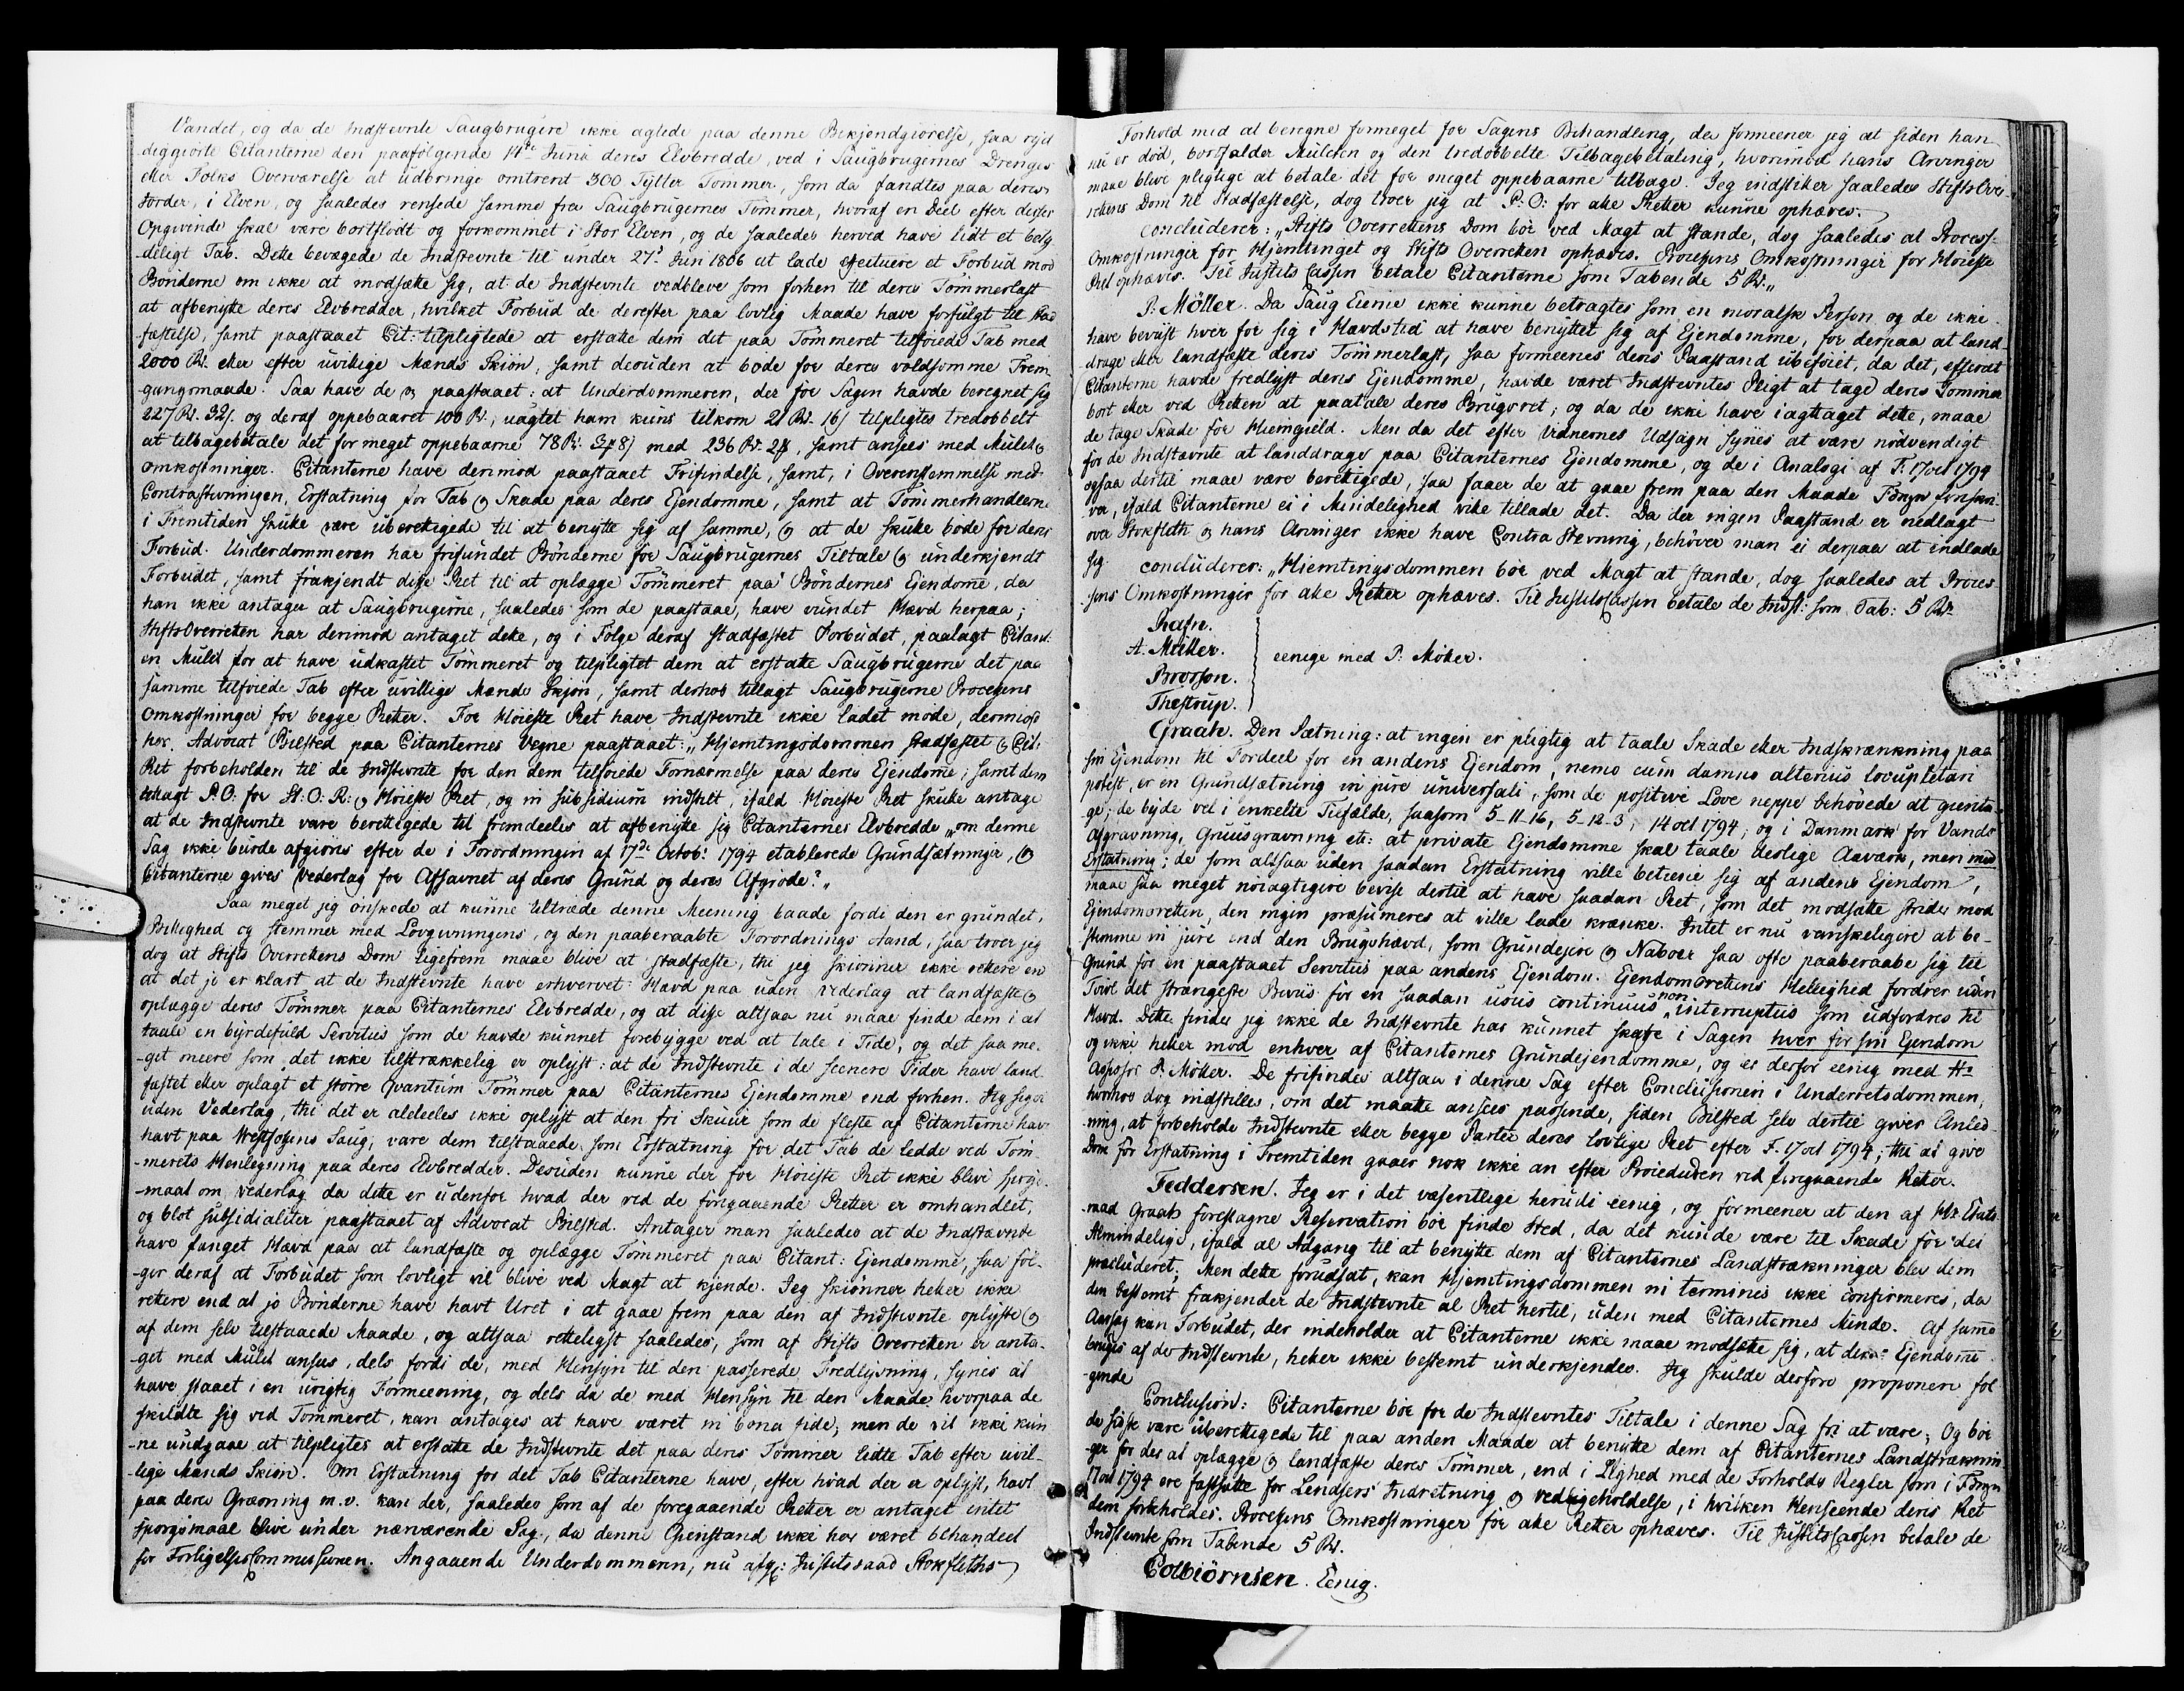 Vandet, og da de Indstevnte Saugbrugere ikke agtede paa denne Bekjendgiörelse, saa ryd
-diggiorte Citanterne den paafölgende 14de Junii deres Elvbredde, ved i Saugbrugernes Drenges
eller Folks Overværelse at udbringe omtrent 300 Tylter Tömmer, som da fandtes paa deres
Jorder, i Elven, og saaledes rensede samme fra Saugbrugernes Tömmer, hvoraf en Deel efter disses
Opgivende skal være bortflödt og forkommet i Stor Elven, og de saaledes herved have lidt et bety
-deligt Tab. Dette bevægede de Indstevnte til under 27de Jun 1806 at lade effectuere et Forbud mod
Bönderne om ikke at modsætte sig, at de Indstevnte vedbleve som forhen til deres Tömmerlast
at afbenytte deres Elvbredder, hvilket Forbud de derefter paa lovlig Maade have forfulgt til Stad
-fæstelse, samt paastaaet Cit: tilpligtede at erstatte dem det paa Tömmeret tilföiede Tab med
2000 Rd. eller efter uvillige Mænds Skiön, samt desuden at böde for deres voldsomme Frem
-gangsmaade. Saa have de og paastaaet: at Underdommeren, der for Sagen havde beregnet sig
227 Rd. 32s. og deraf oppebaaret 100 Rd., uagtet ham kuns tilkom 21 Rd. 16s tilpligtes tredobbelt
at tilbagebetale det for meget oppebaarne 78 Rd. med 236 Rd. samt ansees med Mulct og
Omkostninger. Citanterne have derimod paastaaet Frifindelse, samt, i Overensstemmelse med
Contrastevningen, Erstatning for Tab og Skade paa deres Ejendomme, samt at Tömmerhandlerne
i Fremtiden skulle være uberettigede til at benytte sig af samme, og at de skulle bode for deres
Forbud. Underdommeren har frifundet Bönderne for Saugbrugernes Tiltale og underkjendt
Forbudet, samt frakjendt disse Ret til at oplægge Tömmeret paa Böndernes Ejendome, da
han ikke antager at Saugbrugerne, saaledes som de paastaae, have vundet Hævd herpaa;
StiftsOverretten har derimod antaget dette, og i Folge deraf stadfæstet Forbudet, paalagt Citant:
en Mulct for at have udkastet Tömmeret og tilpligtet dem at erstatte Saugbrugerne det paa
samme tilföiede Tab efter uvillige Mænds Skjön, samt derhos tillagt Saugbrugerne Processens
Omkostninger for begge Retter. For Höieste Ret have Indstevnte ikke ladet möde, derimod
har Advocat Bilsted paa Citanternes Vegne paastaaet: „Hjemtingsdommen stadfæstet og Cit:
Ret forbeholden til de Indstevnte for den dem tilföiede Fornærmelse paa deres Ejendome; samt dem
tillagt P.O. for St: O: R: og Höieste Ret, og in subsidium indstilt, ifald Höieste Ret skulle antage
at de Indstevnte vare berettigede til fremdeeles at afbenytte sig Citanternes Elvbredde „om denne
Sag ikke burde afgiöres efter de i Forordningen af 17de Octob: 1794 etablerede Grundsætninger, og
Citanterne gives Vederlag for Afsavnet af deres Grund og deres Afgröde?„
Saa meget jeg önskede at kunne tiltræde denne Meening baade fordi den er grundet i
Billighed og stemmer med Lovgivningens, og den paaberaabte Forordnings Aand, saa troer jeg
dog at Stifts Overrettens Dom ligefrem maae blive at stadfæste, thi jeg skiönner ikke rettere en
at det jo er klart at de Indstevnte have erhvervet Hævd paa uden Vederlag at landfæste og
oplægge deres Tömmer paa Citanternes Elvbredde, og at disse altsaa nu maae finde dem i at
taale en byrdefuld Servitus som de havde kunnet forebygge ved at tale i Tide, og det saa me
-get meere som det ikke tilstrækkelig er oplyst: at de Indstevnte i de seenere Tider have land
fæstet eller oplagt et större Qvantum Tömmer paa Citanternes Ejendomme end forhen. Jeg siger
uden Vederlag, thi det er aldeeles ikke oplyst at den fri Skuur som de fleste af Citanterne have
havt paa Saug, vare dem tilstaaede, som Erstatning for det Tab de ledde ved Töm-
-merets Henlægning paa deres Elvbredder. Desuden kunne der for Höieste Ret ikke blive spörgs
-maal om Vederlag da dette er udenfor hvad der ved de foregaaende Retter er omhandlet,
og blot subsidialiter paastaaet af Advocat Bilsted. Antager man saaledes at de Indstævnte
have fanget Hævd paa at landfæste og oplægge Tömmeret paa Citant: Ejendomme, saa föl-
-ger deraf at Forbudet som lovligt vil blive ved Magt at kjende. Jeg skiönner heller ikke
rettere end at jo Bönderne have havt Uret i at gaae frem paa den af Indstevnte oplyste og
af dem selv tilstaaede Maade, og altsaa retteligst saaledes, som af Stifts Overretten er anta-
-get med Mulct ansees, dels fordi de, med Hensyn til den passerede Fredlysning, synes at
have staaet i en urigtig Formeening, og dels da de med Hensyn til den Maade hvorpaa de
skildte sig ved Tömmeret, kan antages at have været in bona fide; men de vil ikke kun
-ne undgaae at tilpligtes at erstatte de Indstevnte det paa deres Tömmer lidte Tab efter uvil-
-lige Mænds Skiön. Om Erstatning for det Tab Citanterne have, efter hvad der er oplyst, havt
paa deres Græsning m.v. kan der, saaledes som af de foregaaende Retter er antaget intet
spörgsmaal blive under nærværende Sag, da denne Gienstand ikke har været behandlet
for ForligelsesCommissionen. Angaaende Underdommeren, nu afg: Justitsraad Stokfleths
Forhold med at beregne formeget for Sagens Behandling, da formeener jeg at siden han
nu er död, bortfalder Mulcten og den tredobbelte Tilbagebetaling, hvorimod hans Arvinger
maae blive pligtige at betale det for meget oppebaarne tilbage. Jeg indstiller saaledes StiftsOver
rettens Dom til Stadfæstelse, dog troer jeg at P: O: for alle Retter kunne ophæves.
concluderer: „Stifts Overrettens Dom bör ved Magt at stande, dog saaledes at Process:
Omkostninger for Hjemtinget og Stifts Overretten ophæves. Processens Omkostninger for Höieste
Ret ophæves. Til JustitsCassen betale Citanterne som Tabende 5 Rd.„
P: Möller. Da Saug Eierne ikke kunne betragtes som en moralsk Person og de ikke
have beviist hver for sig i Hævdstid at have benyttet sig af Ejendomme, for derpaa at land-
drage eller landfæste deres Tömmerlast, saa formeenes deres Paastand ubeföiet, da det, efterat
Citanterne havde fredlyst deres Ejendomme, havde været Indstevntes Pligt at tage deres Tömmer
bort eller ved Retten at paatale deres Brugsret; og da de ikke have iagttaget dette, maae
de tage Skade for Hiemgield. Men da det efter Vidnernes Udsagn synes at være nödvendigt
for de Indstævnte at landdrage paa Citanternes Ejendomme, og de i Analogi af F: 17 oct 1794
ogsaa dertil maae være berettigede, saa faaer de at gaae frem paa den Maade Fdngn foreskri-
ver, ifald Citanterne ei i Mindelighed ville tillade det. Da der ingen Paastand er nedlagt
over Stokfleth og hans Arvinger ikke have Contra Stevning, behöver man ei derpaa at indlade
sig. concluderer: „Hiemtingsdommen bör ved Magt at stande, dog saaledes at Proces
-sens Omkostninger for alle Retter ophæves. Til JustitsCassen betale de Indst: som Tab: 5 Rd.
Rafn.
A. Müller.
eenige med P: Möller.
Brorson.
Thestrup.
Graah. Den Sætning: at ingen er pligtig at taale Skade eller Indskrænkning paa
sin Ejendom til Fordeel for en andens Ejendom, nemo cum damno alterius locupletari
potest, er en Grundsætning in jure universali, som de positive Love neppe behövede at gienta-
ge; de byde vel i enkelte Tilfælde, saasom 5-11-16, 5-12-3, 14 oct 1794; og i Danmark for Vands
Afgravning, Gruusgravning etc: at private Ejendomme skal taale deslige Aavirk, men med
Erstatning; de som altsaa uden saadan Erstatning ville betiene sig af andens Ejendom,
maae saa meget nöiagtigere bevise dertil at have saadan Ret, som det modsatte strider mod
Ejendomsretten, den ingen præsumeres at ville lade krænke. Intet er nu vanskeligere at be-
stemme in jure end den Brugshævd, som Grundejere og Naboer saa ofte paaberaabe sig til
Grund for en paastaaet Servitus paa andens Ejendom. Ejendomsrettens Hellighed fordrer uden
Tvivl det strængeste Beviis for en saadan usus continuus non interruptus som udfordres til
Hævd. Dette finder jeg ikke de Indstevnte har kunnet skaffe i Sagen hver for sin Ejendom
og ikke heller mod enhver af Citanternes Grundejendomme, og er derfor eenig med Hr
Assessor P: Möller. De frifindes altsaa i denne Sag efter Conclusionen i Underretsdommen,
hvorhos dog indstilles, om det maatte ansees passende, siden Bilsted selv dertil giver Anled-
ning, at forbeholde Indstevnte eller begge Parter deres lovlige Ret efter F. 17 oct 1794; thi at give
Dom for Erstatning i Fremtiden gaaer nok ikke an efter Proceduren ved foregaaende Retter.
Feddersen. Jeg er i det væsentlige herudi eenig, og formeener at den af Hr Etats
raad Graah foreslagne Reservation bör finde Sted, da det kunde være til Skade for det
Almindelige, ifald al Adgang til at benytte dem af Citanternes Landstrækninger blev dem
præcluderet; Men dette forudsat, kan Hjemtingsdommen in terminis ikke confirmeres, da
den bestemt frakjender de Indstevnte al Ret hertil, uden med Citanternes Minde. Af samme
Aarsag kan Forbudet, der indeholder at Citanterne ikke maae modsætte sig, at deres Ejendome
bruges af de Indstevnte, heller ikke bestemt underkjendes. Jeg skulde derfore proponere föl
-gende
Conclusion: Citanterne bör for de Indstevntes Tiltale i denne Sag fri at være; Og bör
de sidste være uberettigede til paa anden Maade at benytte dem af Citanternes Landstræknin-
-ger for der at oplægge og landfæste deres Tömmer, end i Lighed med de Forholds Regler som i Fdngn
17 oct 1794 ere fastsatte for Lendsers Indretning og Vedligeholdelse, i hvilken Henseende deres Ret
dem forbeholdes. Processens Omkostninger for alle Retter ophæves. Til JustitsCassen betale de
Indstevnte som Tabende 5 Rd.
Colbiörnsen. Eenig.